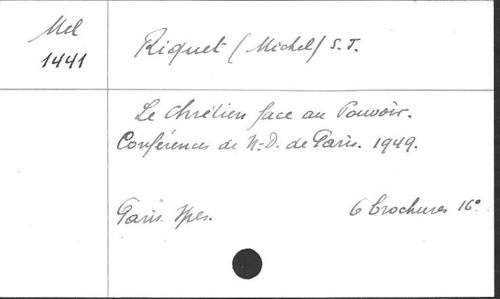 Mel
1441
Riquet (Michel) S.J.
Le Chrétien face au Pouvoir.
Conférences de N.-D. de Paris. 1949.
Paris. Spes. 6 brochures 16°